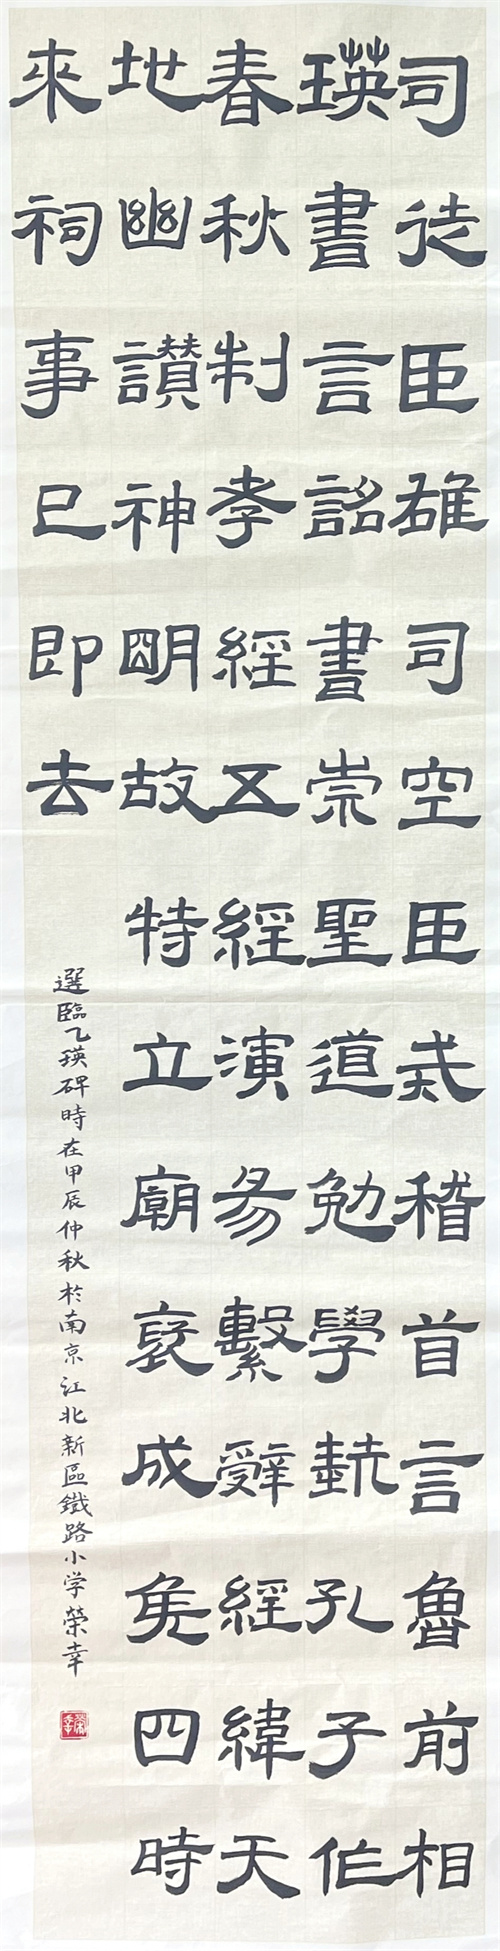 司徒臣雄司空臣戒稽首言魯前相
瑛書言詔書崇聖道勉學蓺孔子作
春秋制孝經五經演易繫辭經緯天
地幽讃神明故特立廟襃成矦四時
來祠事已即去
選臨乙瑛碑時在甲辰仲秋於南京江北新區鐵路小学榮幸